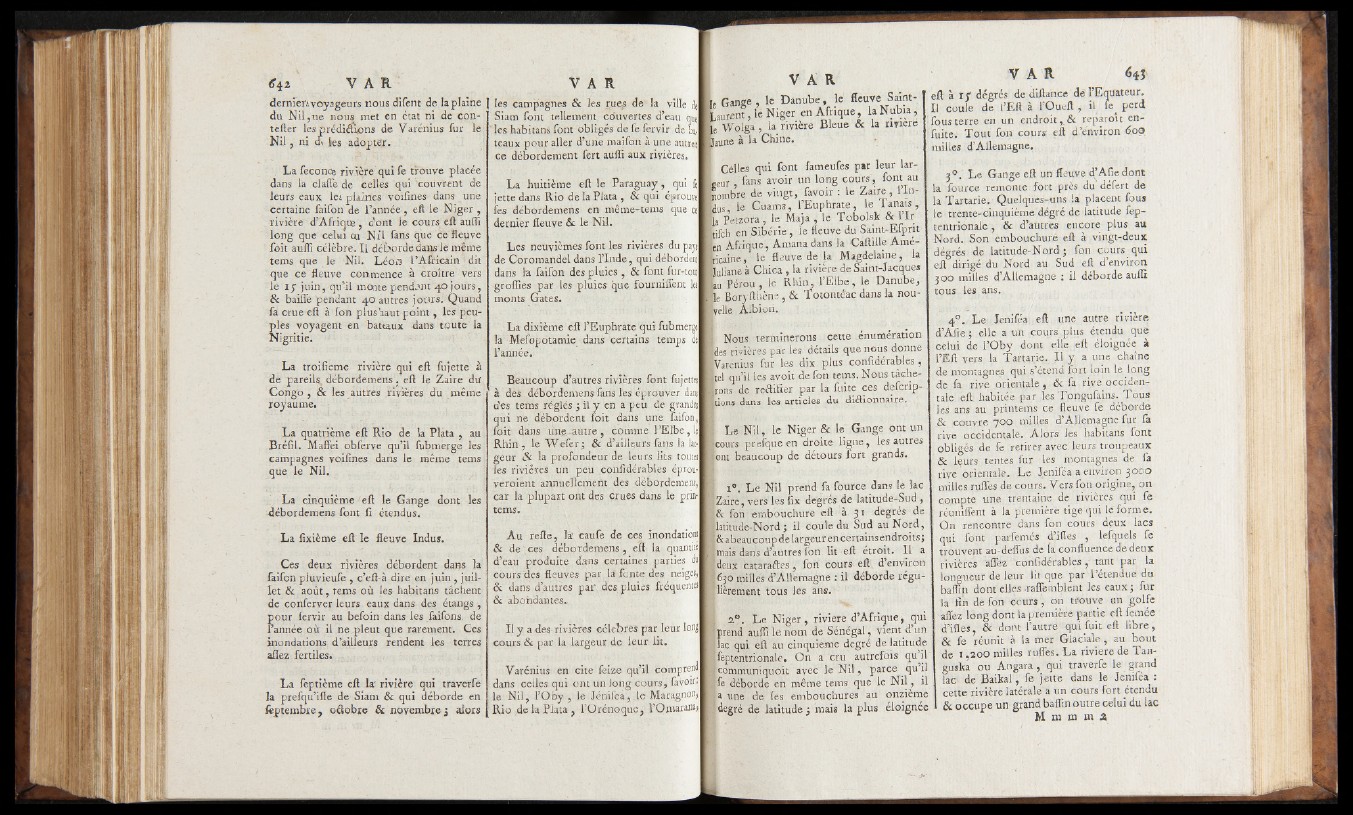 642 V A R
derniers voyageurs nous disent de la plaine
du Nil, ne nous met en état ni de con-
tester les prédictions de Varénius sur le
Nil, ni de les adopter.
La seconde rivière qui se trouve placée
dans la classe de celles qui couvrent de
leurs eaux les plaines voisines dans une
certaine saison de l'année, est le Niger,
rivière d'Afrique, dont le cours est aussi
long que celui du Nil sans que ce fleuve
soit aussi célèbre. Il déborde dans le même
tems que le Nil. Léon l'Africain dit
que ce fleuve commence à croître vers
le 15 juin, qu'il monte pendant 40 jours,
& baisse pendant 40 autres jours. Quand
sa crue est à son plus haut point, les peu-
ples voyagent en bateaux dans toute la
Nigritie.
La troisieme rivière qui est sujette à
de pareils débordemens, est le Zaire du
Congo, & les autres rivières du même
royaume.
La quatrième est Rio de la Plata, au
Brésil. Maffei observe qu'il submerge les
campagnes voisines dans le même tems
que le Nil.
La cinquième est le Gange dont les
débordemens sont si étendus.
La sixième est le fleuve Indus.
Ces deux rivières débordent dans la
saison pluvieuse, c'est-à dire en juin, juil-
let & août, tems où les habitans tâchent
de conserver leurs eaux dans des étangs,
pour servir au besoin dans les saisons de
l'année où il ne pleut que rarement. Ces
inondations d'ailleurs rendent les terres
assez fertiles.
La septième est la rivière qui traverse
la presqu'isle de Siam & qui déborde en
septembre, octobre & novembre; alors
V A R
les campagnes & les rues de la ville de
Siam sont tellement couvertes d'eau que
les habitans sont obligés de se servir de ba-
teaux pour aller d'une maison à une autre;
ce débordement sert aussi aux rivières.
La huitième est le Paraguay, qui se
jette dans Rio de la Plata, & qui éprouve
ses débordemens en même-tems que ce
dernier fleuve & le Nil.
Les neuvièmes sont les rivières du pays
de Coromandel dans l'Inde, qui débordent
dans la saison des pluies, & sont sur-tout
grossies par les pluies que fournissent les
monts Gates.
La dixième est l'Euphrate qui submerge
la Mesopotamie dans certains temps de
l'année.
Beaucoup d'autres rivières sont sujettes
à des débordemens sans les éprouver dans
des tems réglés; il y en a peu de grandes
qui ne débordent soit dans une saison,
soit dans une autre, comme l'Elbe, le
Rhin, le Weser; & d'ailleurs sans la lar-
geur & la profondeur de leurs lits toutes
les rivières un peu considérables éprou-
veroient annuellement des débordemens,
car la plupart ont des crues dans le prin-
tems.
Au reste, la cause de ces inondations
& de ces débordemens, est la quantité
d'eau produite dans certaines parties du
cours des fleuves par la fonte des neiges,
& dans d'autres par des pluies fréquentes
& abondantes.
Il y a des rivières célèbres par leur long
cours & par la largeur de leur lit.
Varénius en cite seize qu'il comprend
dans celles qui ont un long cours, savoir:
le Nil, l'Oby, le Jéniséa, le Maragnon,
Rio de la Plata, l'Orénoque, l'Omarana,
V A R
le Gange, le Danube, le fleuve Saint-
Laurent, le Niger en Afrique, la Nubia,
le Wolga, la rivière Bleue & la rivière
Jaune à la Chine.
Celles qui sont fameuses par leur lar-
geur, sans avoir un long cours, sont au
nombre de vingt, savoir: le Zaire, l'In-
dus, le Cuama, l'Euphrate, le Tanais,
la Petzora, le Maja, le Tobolsk & l'Ir
tisch en Sibérie, le fleuve du Saint-Esprit
en Afrique, Amana dans la Castille Amé-
ricaine, le fleuve de la Magdelaine, la
Juliane à Chica, la rivière de Saint-Jacques
au Pérou, le Rhin, l'Elbe, le Danube,
le Borysthène, & Totontéac dans la nou-
velle Albion.
Nous terminerons cette énumération
des rivières par les détails que nous donne
Varenius sur les dix plus considérables,
tel qu'il les avoit de son tems. Nous tâche-
rons de rectifier par la suite ces descrip-
tions dans les articles du dictionnaire.
Le Nil, le Niger & le Gange ont un
cours presque en droite ligne, les autres
ont beaucoup de détours fort grands.
1°. Le Nil prend sa source dans le lac
Zaire, vers les six degrés de latitude-Sud,
& son embouchure est à 31 degrés de
latitude-Nord; il coule du Sud au Nord,
& a beaucoup de largeur en certains endroits;
mais dans d'autres son lit est étroit. Il a
deux cataractes, son cours est d'environ
630 milles d'Allemagne: il déborde régu-
lièrement tous les ans.
2°. Le Niger, riviere d'Afrique, qui
prend aussi le nom de Sénégal, vient d'un
lac qui est au cinquieme degré de latitude
septentrionale. On a cru autrefois qu'il
communiquoit avec le Nil, parce qu'il
se déborde en même tems que le Nil, il
a une de ses embouchures au onzième
degré de latitude; mais la plus éloignée
V A R 643
est à 15 dégrés de distance de l'Equateur.
Il coule de l'Est à l'Ouest, il se perd
sous terre en un endroit, & reparoît en-
suite. Tout son cours est d'environ 600
milles d'Allemagne.
3°. Le Gange est un fleuve d'Asie dont
la source remonte fort près du désert de
la Tartarie. Quelques-uns la placent sous
le trente-cinquième dégré de latitude sep-
tentrionale, & d'autres encore plus au
Nord. Son embouchure est à vingt-deux
dégrés de latitude-Nord; son cours qui
est dirigé du Nord au Sud est d'environ
300 milles d'Allemagne: il déborde aussi
tous les ans.
4°. Le Jeniséa est une autre rivière
d'Asie; elle a un cours plus étendu que
celui de l'Oby dont elle est éloignée à
l'Est vers la Tartarie. Il y a une chaîne
de montagnes qui s'étend fort loin le long
de sa rive orientale, & sa rive occiden-
tale est habitée par les Tongusains. Tous
les ans au printems ce fleuve se déborde
& couvre 700 milles d'Allemagne sur sa
rive occidentale. Alors les habitans sont
obligés de se retirer avec leurs troupeaux
& leurs tentes sur les montagnes de sa
rive orientale. Le Jeniséa a environ 3000
milles russes de cours. Vers son origine, on
compte une trentaine de rivières qui se
réunissent à la première tige qui le forme.
On rencontre dans son cours deux lacs
qui sont parsemés d'isles, lesquels se
trouvent au-dessus de la confluence de deux
rivières assez considérables, tant par la
longueur de leur lit que par l'étendue du
bassin dont elles rassemblent les eaux; sur
la fin de son cours, on trouve un golfe
assez long dont la première partie est semée
d'isles, & dont l'autre qui suit est libre,
& se réunit à la mer Glaciale, au bout
de 1,200 milles russes. La riviere de Tan-
guska ou Angara, qui traverse le grand
lac de Baikal, se jette dans le Jeniséa:
cette rivière latérale a un cours fort étendu
& occupe un grand bassin outre celui du lac
M m m m 2